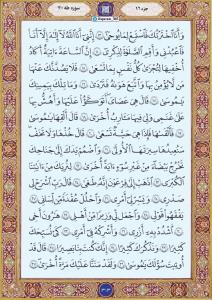 جزء ١٦
سوره طه ٢٠
وَأَنَا ٱخۡتَرۡتُكَ فَٱسۡتَمِعۡ لِمَا يُوحَىٰٓ ١٣ إِنَّنِيٓ أَنَا ٱللَّهُ لَآ إِلَٰهَ إِلَّآ أَنَا۠
فَٱعۡبُدۡنِي وَأَقِمِ ٱلصَّلَوٰةَ لِذِكۡرِيٓ ١٤ إِنَّ ٱلسَّاعَةَ ءَاتِيَةٌ أَكَادُ
أُخۡفِيهَا لِتُجۡزَىٰ كُلُّ نَفۡسِۭ بِمَا تَسۡعَىٰ ١٥ فَلَا يَصُدَّنَّكَ عَنۡهَا
مَن لَّا يُؤۡمِنُ بِهَا وَٱتَّبَعَ هَوَىٰهُ فَتَرۡدَىٰ ١٦ وَمَا تِلۡكَ بِيَمِينِكَ
يَٰمُوسَىٰ ١٧ قَالَ هِيَ عَصَايَ أَتَوَكَّؤُاْ عَلَيۡهَا وَأَهُشُّ بِهَا
عَلَىٰ غَنَمِي وَلِيَ فِيهَا مَـَٔارِبُ أُخۡرَىٰ ١٨ قَالَ أَلۡقِهَا يَٰمُوسَىٰ
١٩ فَأَلۡقَىٰهَا فَإِذَا هِيَ حَيَّةٌ تَسۡعَىٰ ٢٠ قَالَ خُذۡهَا وَلَا تَخَفۡ
سَنُعِيدُهَا سِيرَتَهَا ٱلۡأُولَىٰ ٢١ وَٱضۡمُمۡ يَدَكَ إِلَىٰ جَنَاحِكَ
تَخۡرُجۡ بَيۡضَآءَ مِنۡ غَيۡرِ سُوٓءٍ ءَايَةً أُخۡرَىٰ ٢٢ لِنُرِيَكَ مِنۡ ءَايَٰتِنَا
ٱلۡكُبۡرَى ٢٣ ٱذۡهَبۡ إِلَىٰ فِرۡعَوۡنَ إِنَّهُۥ طَغَىٰ ٢٤ قَالَ رَبِّ ٱشۡرَحۡ لِي
صَدۡرِي ٢٥ وَيَسِّرۡ لِيٓ أَمۡرِي ٢٦ وَٱحۡلُلۡ عُقۡدَةً مِّن لِّسَانِي ٢٧
يَفۡقَهُواْ قَوۡلِي ٢٨ وَٱجۡعَل لِّي وَزِيرًا مِّنۡ أَهۡلِي ٢٩ هَٰرُونَ أَخِي ٣٠
ٱشۡدُدۡ بِهِۦٓ أَزۡرِي ٣١ وَأَشۡرِكۡهُ فِيٓ أَمۡرِي ٣٢ كَيۡ نُسَبِّحَكَ
كَثِيرًا ٣٣ وَنَذۡكُرَكَ كَثِيرًا ٣٤ إِنَّكَ كُنتَ بِنَا بَصِيرًا ٣٥ قَالَ قَدۡ
أُوتِيتَ سُؤۡلَكَ يَٰمُوسَىٰ ٣٦ وَلَقَدۡ مَنَنَّا عَلَيۡكَ مَرَّةً أُخۡرَىٰٓ ٣٧